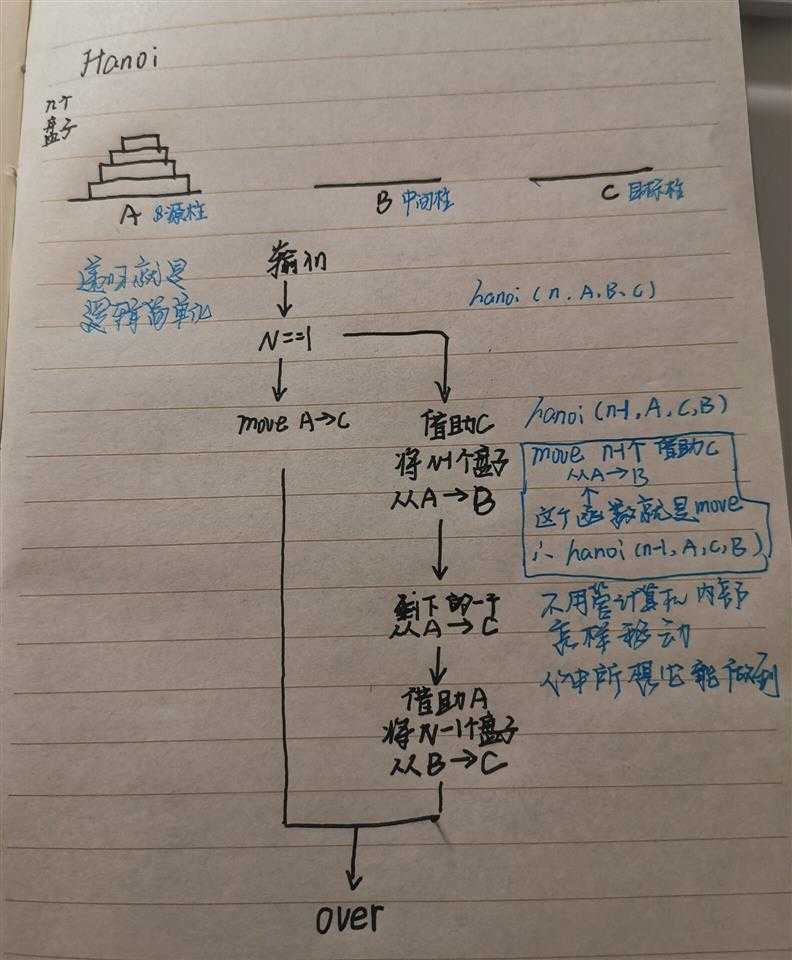 Hanoi
n个
盘子
A 源柱
B 中间柱
C 目标柱
递归就是
逻辑简单化
输入
hanoi (n, A, B, C)
N==1
move A→C
借助C
将N-1个盘子
从A→B
hanoi (n-1, A, C, B)
move n-1个 借助C
从A→B
这个函数就是move
∴ hanoi (n-1, A, C, B)
剩下的一个
从A→C
不用管计算机内部
怎样移动
所想它能做到
借助A
将N-1个盘子
从B→C
over